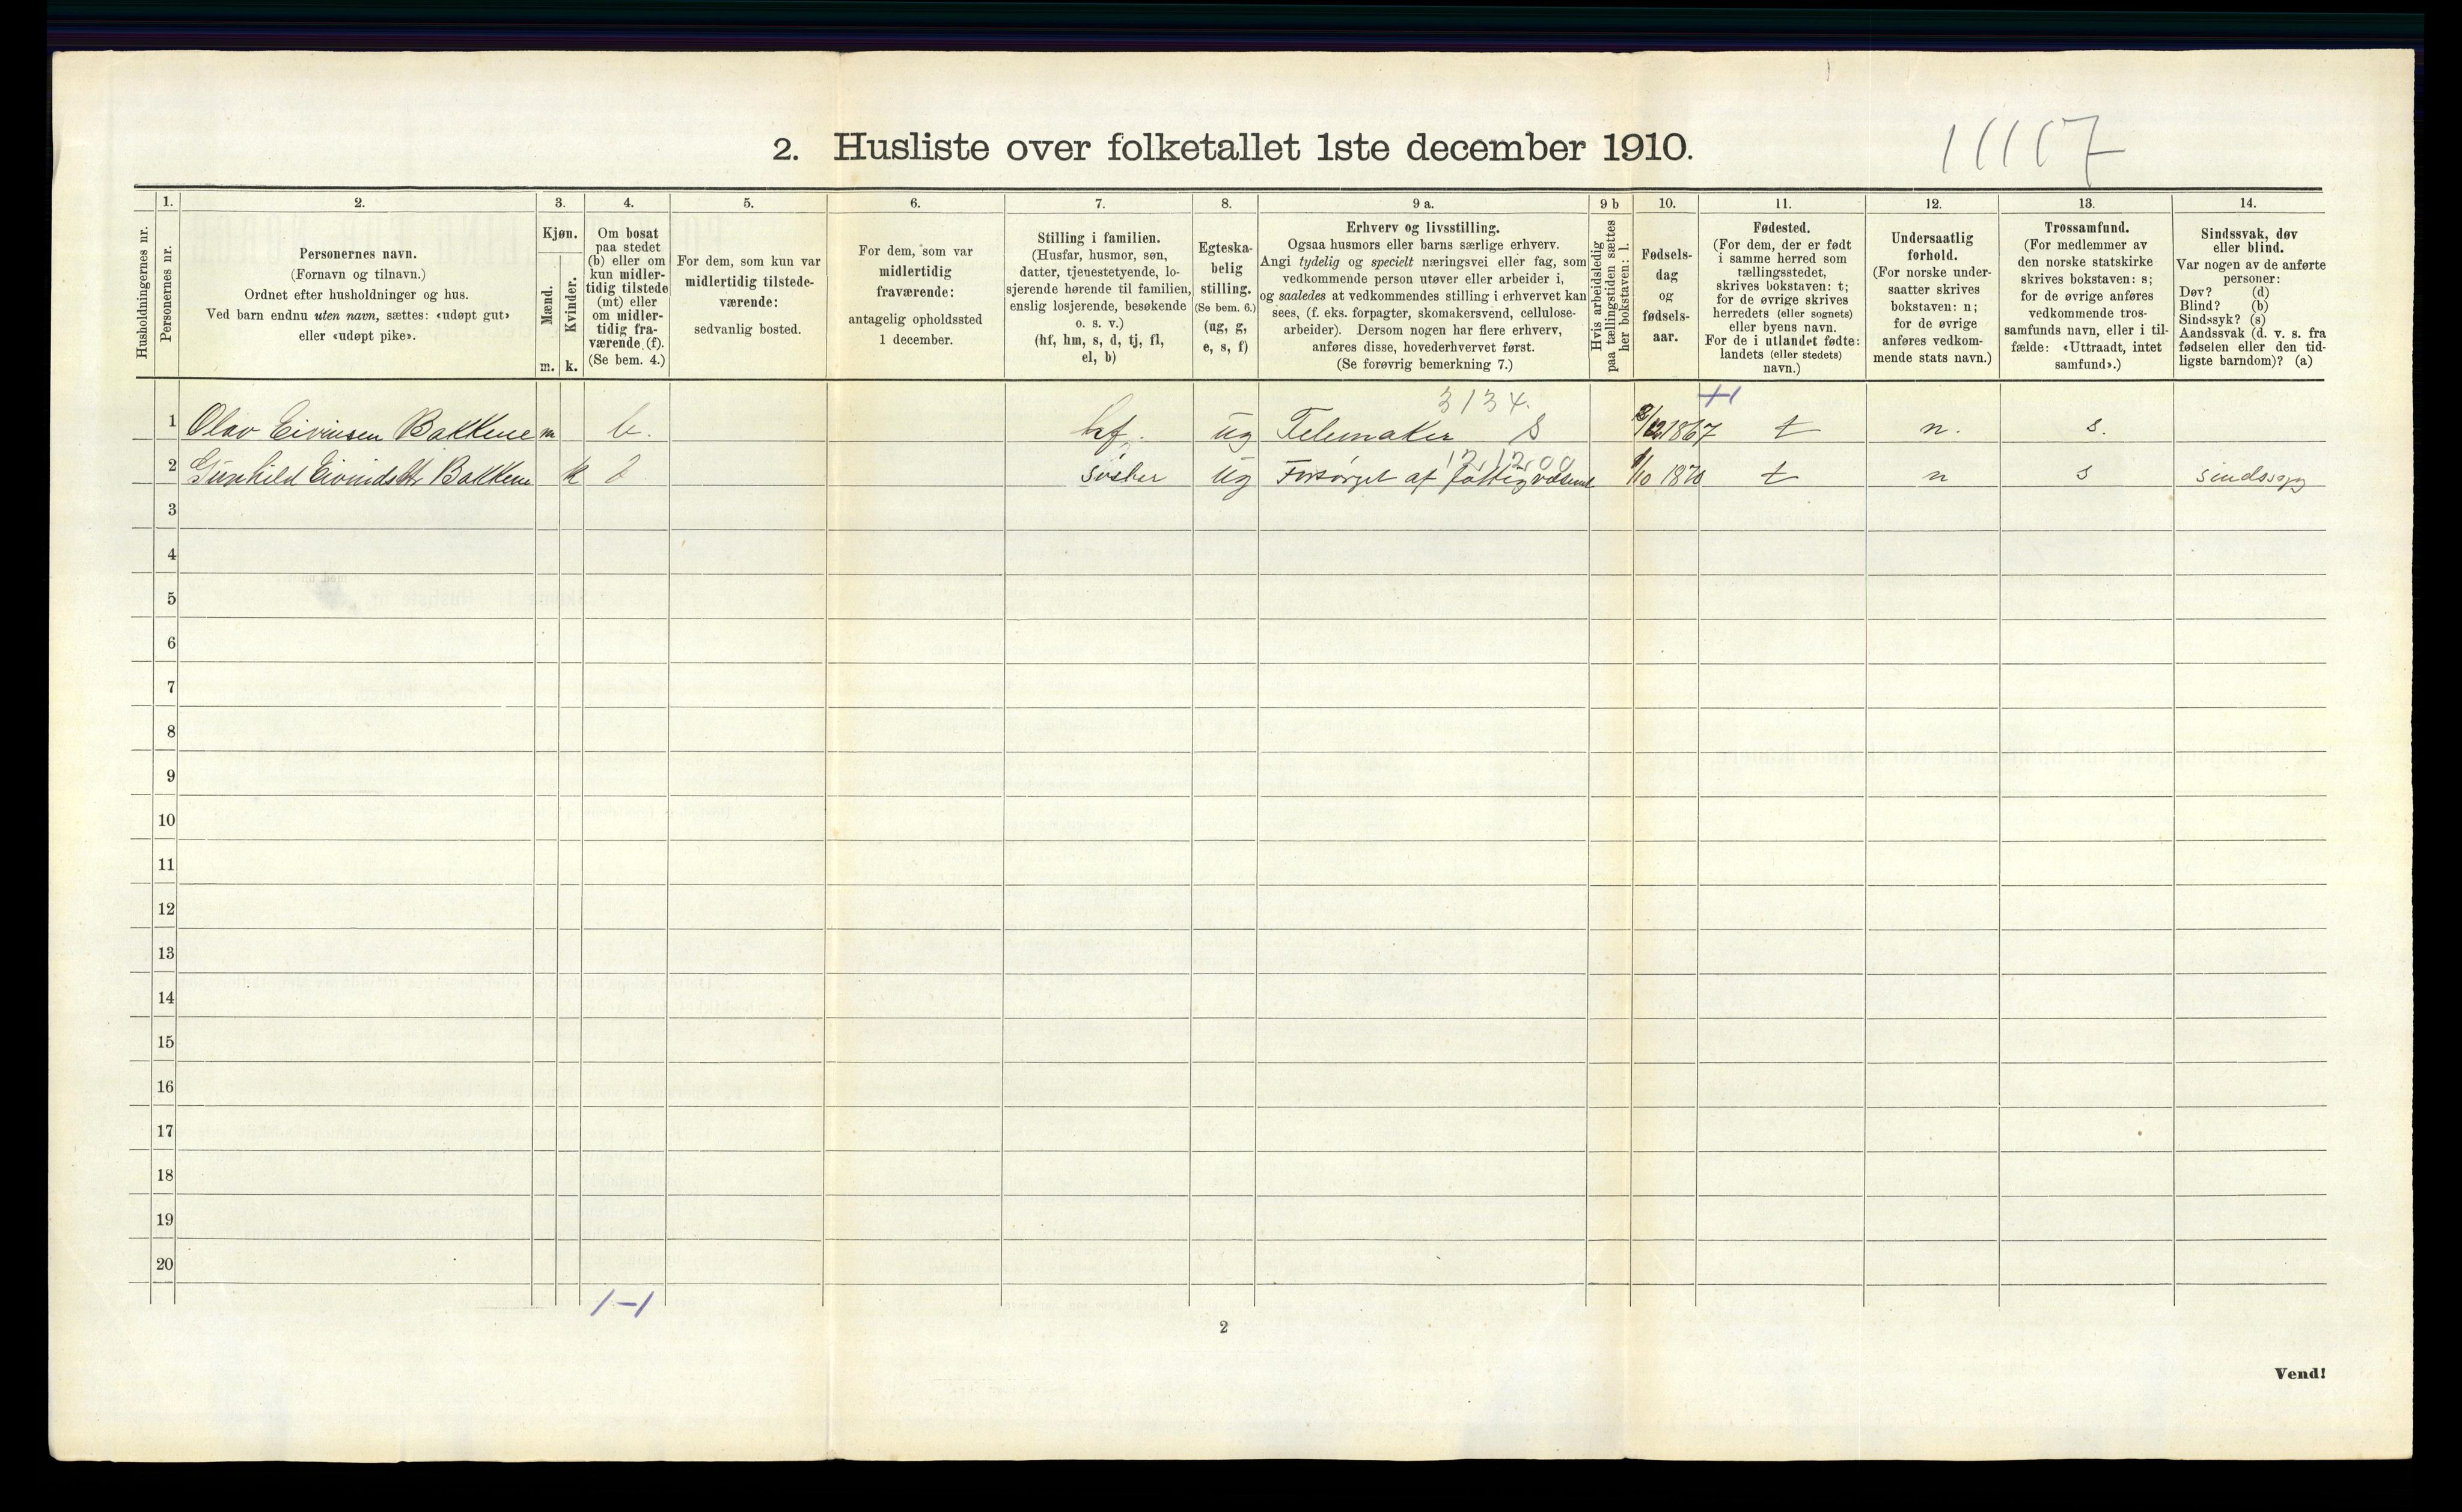 11117
2. Husliste over folketallet 1ste december 1910.
Husholdningernes nr.
1.
Personernes nr.
2.
Personernes navn.
(Fornavn og tilnavn.)
Ordnet efter husholdninger og hus.
Ved barn endnu uten navn, sættes: «udøpt gut»
eller «udøpt pike».
3.
Kjøn.
Mænd.
Kvinder.
m. k.
4.
Om bosat
paa stedet
(b) eller om
kun midler-
tidig tilstede
(mt) eller
om midler-
tidig fra-
værende (f).
(Se bem. 4.)
5.
For dem, som kun var
midlertidig tilstede-
værende:
sedvanlig bosted.
6.
For dem, som var
midlertidig
fraværende:
antagelig opholdssted
1 december.
7.
Stilling i familien.
(Husfar, husmor, søn,
datter, tjenestetyende, lo-
sjerende hørende til familien,
enslig losjerende, besøkende
o. s. v.)
(hf, hm, s, d, tj, fl,
el, b)
8.
Egteska-
belig
stilling.
(Se bem. 6.)
(ug, g,
e, s, f)
9 a.
Erhverv og livsstilling.
Ogsaa husmors eller barns særlige erhverv.
Angi tydelig og specielt næringsvei eller fag, som
vedkommende person utøver eller arbeider i,
og saaledes at vedkommendes stilling i erhvervet kan
sees, (f. eks. forpagter, skomakersvend, cellulose-
arbeider). Dersom nogen har flere erhverv,
anføres disse, hovederhvervet først.
(Se forøvrig bemerkning 7.)
9 b
Hvis arbeidsledig
paa tællingstiden sættes
her bokstaven: l.
10.
Fødsels-
dag
og
fødsels-
aar.
11.
Fødested.
(For dem, der er født
i samme herred som
tællingsstedet,
skrives bokstaven: t;
for de øvrige skrives
herredets (eller sognets)
eller byens navn.
For de i utlandet fødte:
landets (eller stedets)
navn.)
12.
Undersaatlig
forhold.
(For norske under-
saatter skrives
bokstaven: n;
for de øvrige
anføres vedkom-
mende stats navn.)
13.
Trossamfund.
(For medlemmer av
den norske statskirke
skrives bokstaven: s;
for de øvrige anføres
vedkommende tros-
samfunds navn, eller i til-
fælde: «Uttraadt, intet
samfund».)
14.
Sindssvak, døv
eller blind.
Var nogen av de anførte
personer:
Døv? (d)
Blind? (b)
Sindssyk? (s)
Aandssvak (d. v. s. fra
fødselen eller den tid-
ligste barndom)? (a)
3134.
1 Olav Eivinsen Bakkene m b. hf. ug Felemaker S /12 1867 t n. s.
12,1200
2 Gunhild Eivindsdtr Bakkene k b søster ug Forsørget af fattigvæsenet /10 1870 t n s sindssyg
3
4
5
6
7
8
9
10
11
12
13
14
15
16
17
18
19
20
1-1
2
Vend!